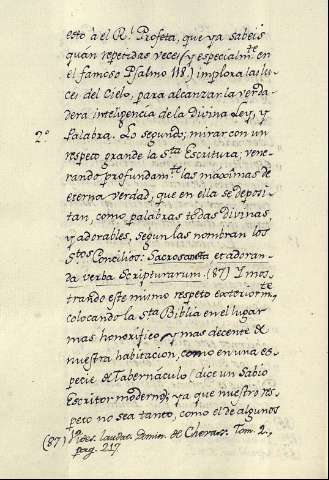 esto à el R.l Profeta, que ya sabeis
quán repetidas veces (y especialm.te en
el famoso Psalmo 118) implora las lu-
ces del Cielo, para alcanzar la verda-
dera inteligencia de la Divina Ley, y
Palabra. Lo segundo; mirar con un
2.º
respeto grande la S.ta Escritura, vene-
rando profundam.te las maximas de
eterna verdad, que en ella se deposi-
tan, como palabras todas divinas,
y adorables, segun las nombran los
S.tos Concilios: Sacrosancta, et adoran-
da verba Scripturarum. (87) I mos-
trando este mismo respeto exteriorm.te
colocando la S.ta Biblia en el lugar
mas honorifico y mas decente de
nuestra habitacion, como en una es-
pecie de Tabernáculo (dice un Sabio
Escritor moderno) ya que nuestro res-
peto no sea tanto, como el de algunos
(87) Vides. laudat. Domin. de Cheras. Tom. 2.
pag. 217